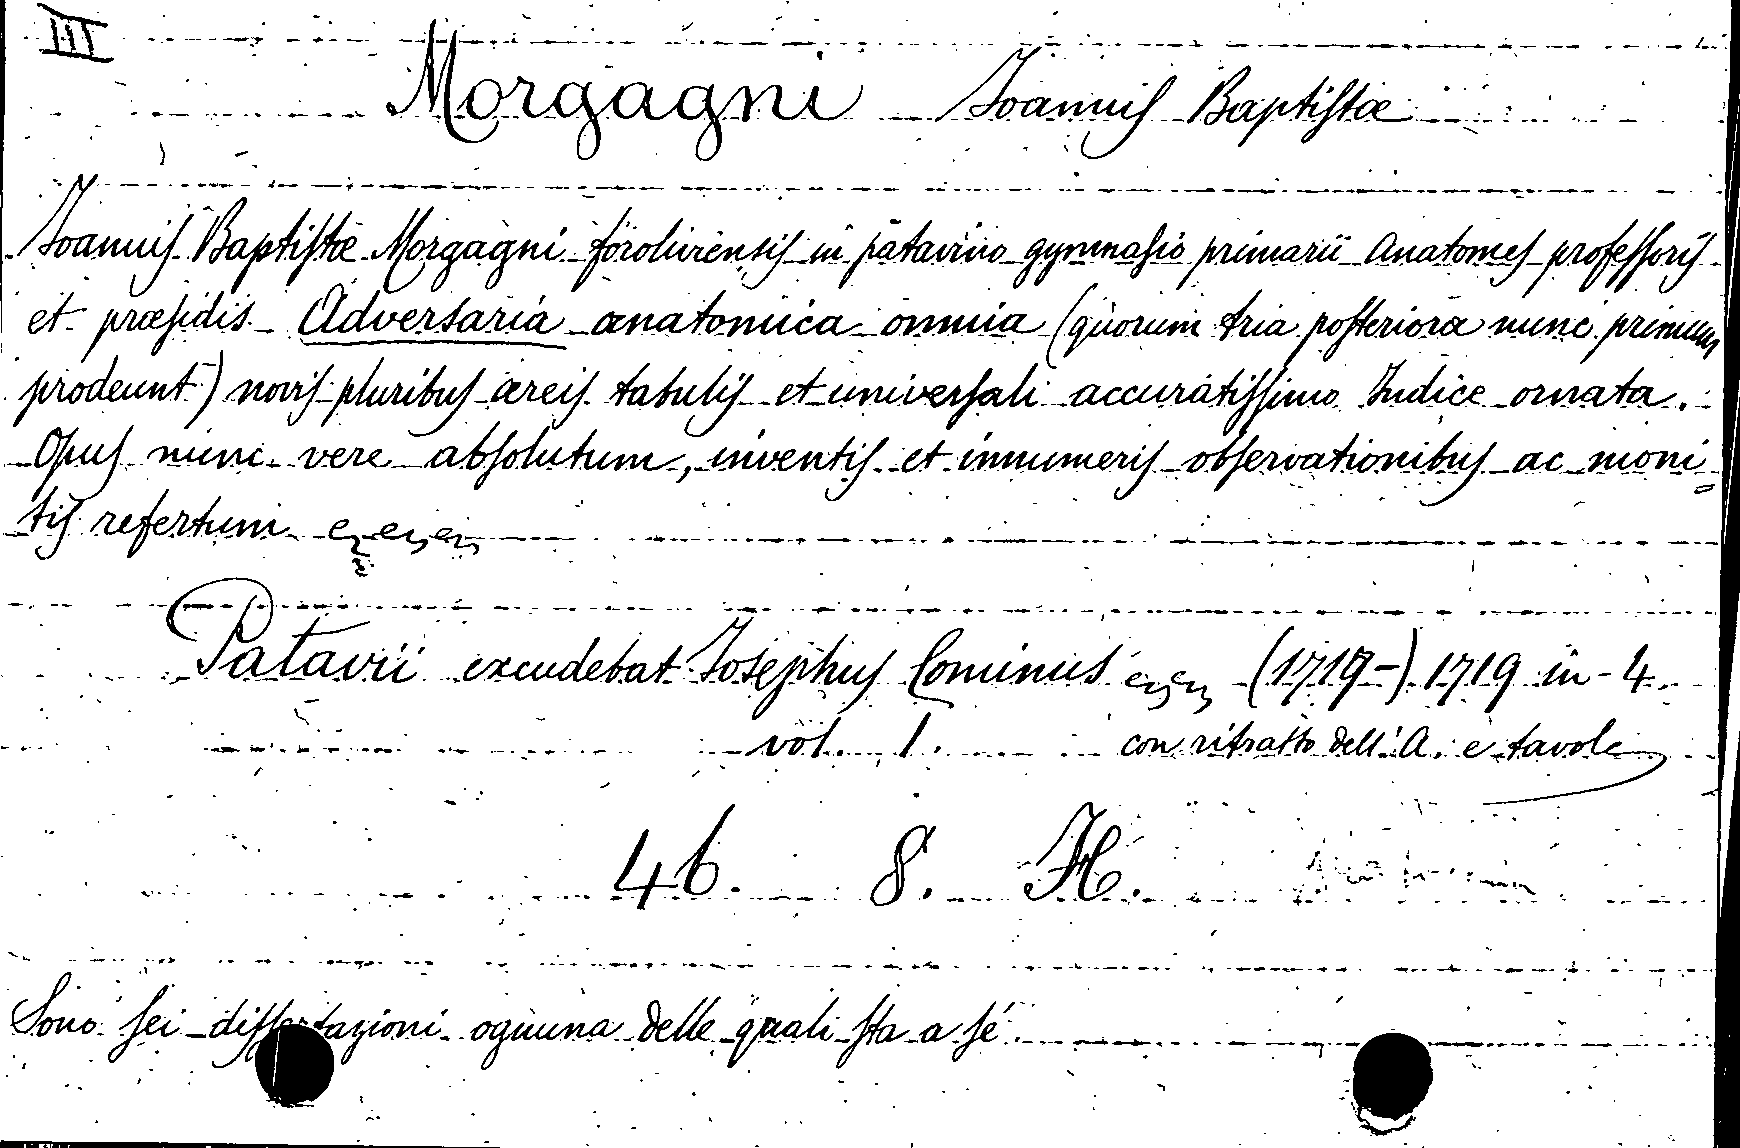 III
Morgagni Joannis Baptistæ
Joannis Baptistæ Morgagni foroliviensis in patavino gymnasio primarii Anatomes professoris
et præsidis Adversaria anatomica omnia (quorum tria posteriora nunc primum
prodeunt) novis pluribus æreis tabulis et universali accuratissimo Indice ornata.
Opus nunc vere absolutum, inventis et innumeris observationibus ac moni=
tis refertum
Patavii excudebat Josephus Cominus (1717-) 1719 in-4.
vol. 1. con ritratto dell'A. e tavole
46. 8. H.
Sono sei dissertazioni ognuna delle quali sta a sé